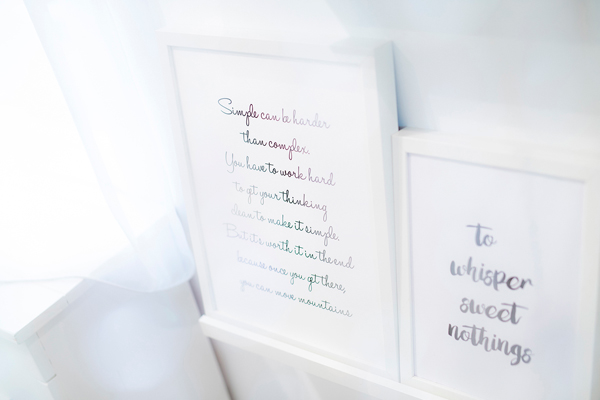 Simple can be harder
than complex.
You have to work hard
to get your thinking
clean to make it simple.
But it's worth it in the end
because once you get there,
you can move mountains
to
whisper
sweet
nothings